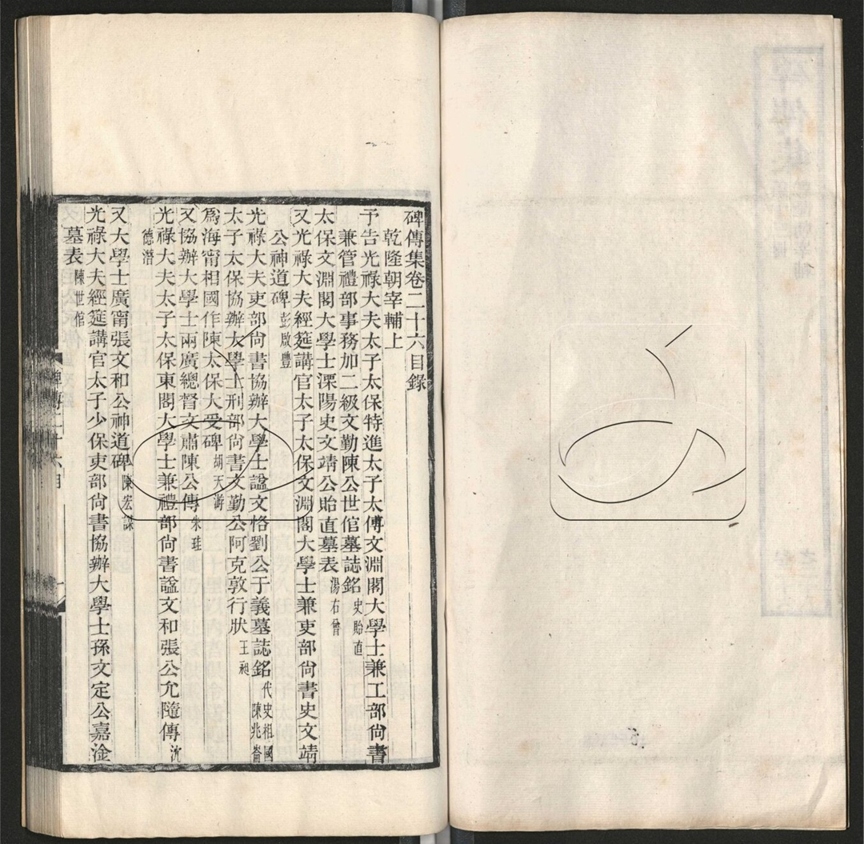 碑傳集卷二十六目錄
乾隆朝宰輔上
予告光祿大夫太子太保特進太子太傅文淵閣大學士兼工部尙書
兼管禮部事務加二級文勤陳公世倌墓誌銘 史貽直
太保文淵閣大學士溧陽史文靖公貽直墓表 湯右曾
又光祿大夫經筵講官太子太保文淵閣大學士兼吏部尙書史文靖
公神道碑 彭啟豐
光祿大夫吏部尙書協辦大學士諡文恪劉公于義墓誌銘 代史祖國 陳兆崙
太子太保協辦大學士刑部尙書文勤公阿克敦行狀 王昶
爲海甯相國作陳太保大受碑 胡天游
又協辦大學士兩廣總督文肅陳公傳 朱珪
光祿大夫太子太保東閣大學士兼禮部尙書諡文和張公允隨傳 沈
德潛
又大學士廣甯張文和公神道碑 陳宏謀
光祿大夫經筵講官太子少保吏部尙書協辦大學士孫文定公嘉淦
墓表 陳世倌